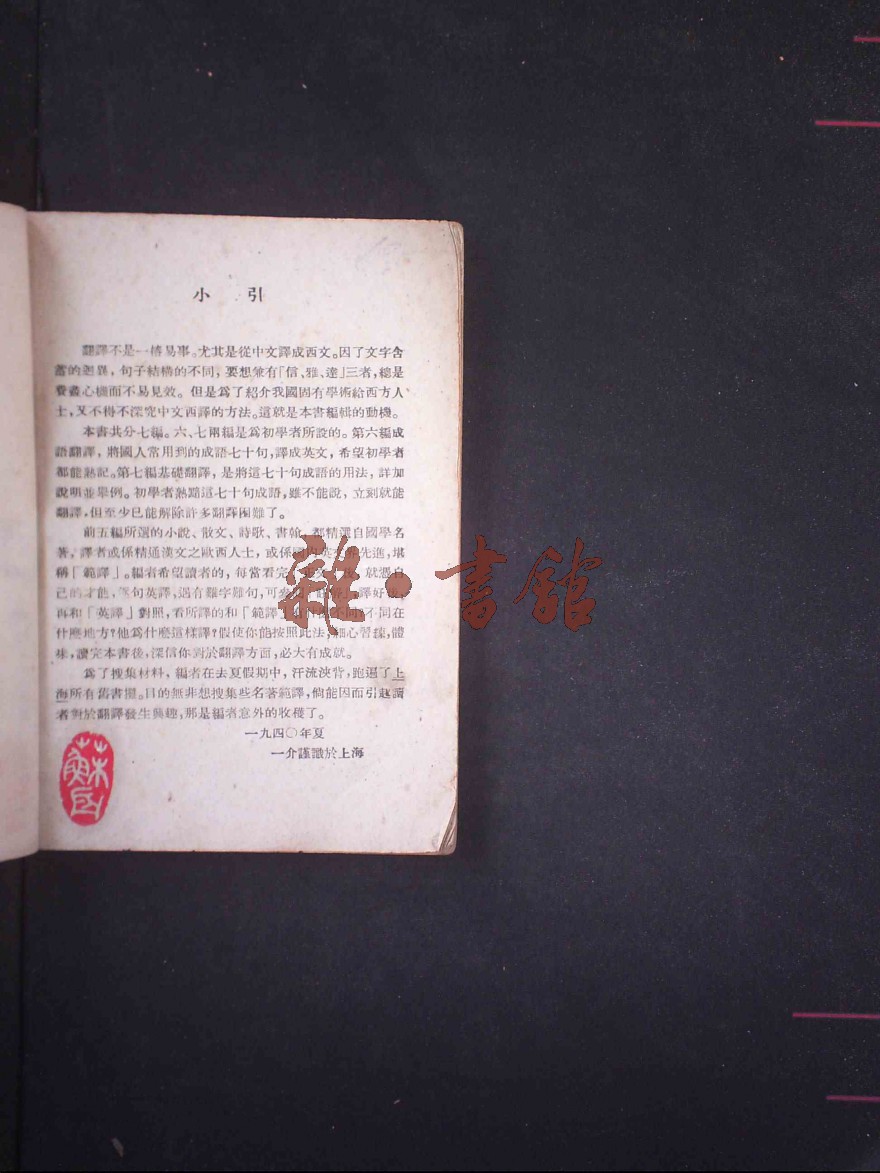 小引
翻譯不是一樁易事。尤其是從中文譯成西文。因了文字含
蓄的迥異，句子結構的不同，要想兼有「信、雅、達」三者，總是
費盡心機而不易見效。但是爲了紹介我國固有學術給西方人
士，又不得不深究中文西譯的方法。這就是本書編輯的動機。
本書共分七編。六、七兩編是爲初學者所設的。第六編成
語翻譯，將國人常用到的成語七十句，譯成英文，希望初學者
都能熟記。第七編基礎翻譯，是將這七十句成語的用法，詳加
說明並舉例。初學者熟諳這七十句成語，雖不能說，立刻就能
翻譯，但至少已能解除許多翻譯困難了。
前五編所選的小說、散文、詩歌、書翰，都精選自國學名
著，譯者或係精通漢文之歐西人士，或係國內英文界先進，堪
稱「範譯」。編者希望讀者的，每當看完，就憑自
己的才能，逐句英譯，遇有難字難句，可參，譯好後，
再和「英譯」對照，看所譯的和「範譯」不同？不同在
什麼地方？他爲什麼這樣譯？假使你能按照此法，細心習揉，體
味，讀完本書後，深信你對於翻譯方面，必大有成就。
爲了搜集材料，編者在去夏假期中，汗流浹背，跑遍了上
海所有舊書攤。目的無非想搜集些名著範譯，倘能因而引起讀
者對於翻譯發生興趣，那是編者意外的收穫了。
一九四〇年夏
一介謹識於上海
雜·書館